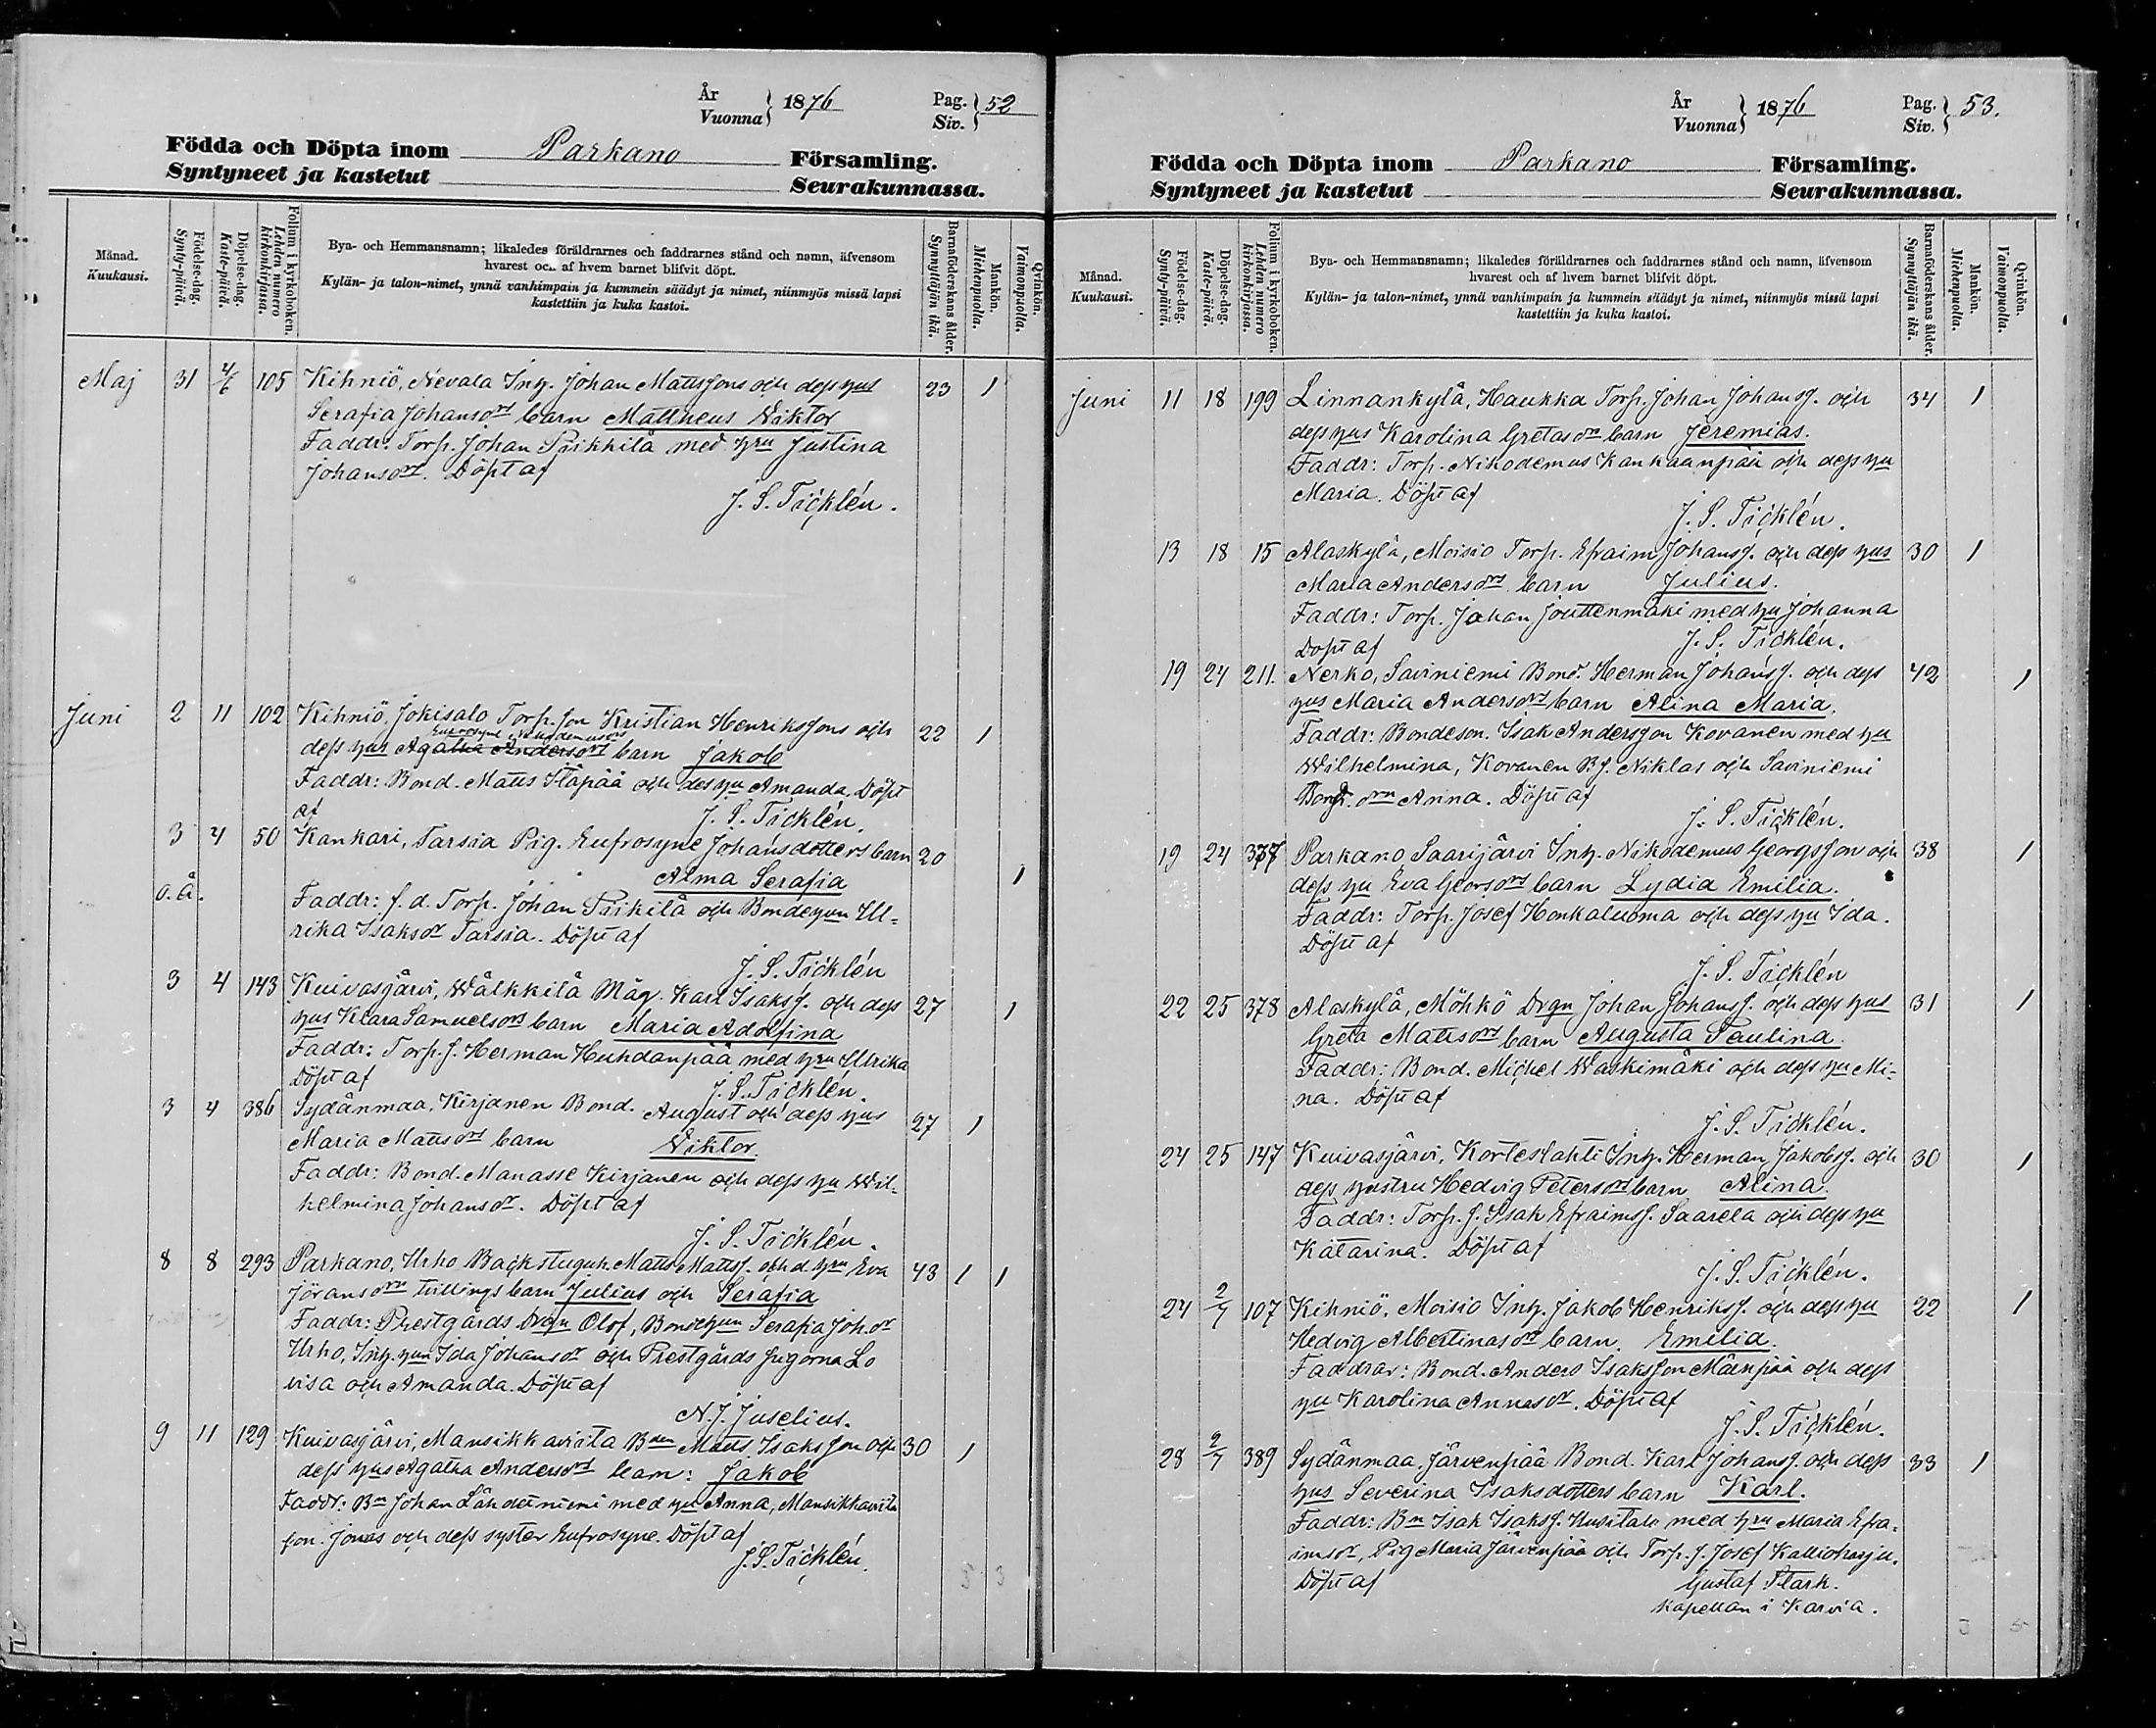 År
Vuonna 1876
Pag.
Siv. 52
Födda och Döpta inom Parkano Församling.
Syntyneet ja kastetut Seurakunnassa.
Månad.
Kuukausi.
Födelse-dag.
Synty-päivä.
Döpelse-dag.
Kaste-päivä.
Folium i kyrkoboken.
Lehden numero kirkonkirjassa.
Bya- och Hemmansnamn; likaledes föräldrarnes och faddrarnes stånd och namn, äfvensom
hvarest och af hvem barnet blifvit döpt.
Kylän- ja talon-nimet, ynnä vanhimpain ja kummein säädyt ja nimet, niinmyös missä lapsi
kastettiin ja kuka kastoi.
Barnaföderskans ålder.
Synnyttäjän ikä.
Mankön.
Miehenpuolla.
Qvinkön.
Vaimonpuolla.
Maj 31 4/6 105 Kihniö, Nevala Inh. Johan Mattssons och dess hus 23 1
Serafia Johansdrs barn Mattheus Wiktor
Faddr. Torp. Johan Pirkkilä med hru Justina
Johansdr. Döpt af
J. S. Ticklén.
Juni 2 11 102 Kihniö, Jokisalo Torp. son Kristian Henrikssons och 22 1
Eufrosyne Nikodemusdrs
dess hus Agatha Andersdrs barn Jakob
Faddr: Bond. Matts Yläpää och des hu Amanda. Döpt
af J. S. Ticklén.
3 4 50 Kankari, Tarsia Pig. Eufrosyne Johansdotters barn 20 1
Alma Serafia
o.ä.
Faddr: f. d. Torp. Johan Pirkilä och Bondehun Ul-
rika Isaksdr Tarsia. Döpt af
J. S. Ticklén
3 4 143 Kuivasjärvi, Wälkkilä Måg. Karl Isakss. och dess 27 1
hus Klara Samuelsdrs barn Maria Adolfina
Faddr: Torp. s. Herman Huhdanpää med hru Ulrika
Döpt af J. S. Ticklén.
3 4 386 Sydänmaa, Kirjanen Bond. August och dess hus 27 1
Maria Mattsdrs barn Wiktor.
Faddr: Bond. Manasse Kirjanen och dess hu Wil-
helmina Johansdr. Döpt af
J. S. Ticklén.
8 8 293 Parkano, Urho Backstuguh. Matts Mattss. och d. hru Eva 43 1 1
Jöransdrs tvillings barn Julius och Serafia
Faddr: Prestgårds Drgn Olof, Bondehun Serafia Joh.dr
Urho, Inh. hun Ida Johansdr och Prestgårds pigorna Lo
visa och Amanda. Döpt af
N. J. Juselius.
9 11 129 Kuivasjärvi, Mansikkaviita Bden Matts Isaksson och 30 1
dess hus Agatha Andersdrs barn: Jakob
Faddr: Bn Johan Lähdeniemi med hu Anna, Mansikkaviita
son. Jonas och dess syster Eufrosyne. Döpt af
J. S. Ticklén.
5 3
År
Vuonna 1876
Pag.
Siv. 53.
Födda och Döpta inom Parkano Församling.
Syntyneet ja kastetut Seurakunnassa.
Månad.
Kuukausi.
Födelse-dag.
Synty-päivä.
Döpelse-dag.
Kaste-päivä.
Folium i kyrkoboken.
Lehden numero kirkonkirjassa.
Bya- och Hemmansnamn; likaledes föräldrarnes och faddrarnes stånd och namn, äfvensom
hvarest och af hvem barnet blifvit döpt.
Kylän- ja talon-nimet, ynnä vanhimpain ja kummein säädyt ja nimet, niinmyös missä lapsi
kastettiin ja kuka kastoi.
Barnaföderskans ålder.
Synnyttäjän ikä.
Mankön.
Miehenpuolla.
Qvinkön.
Vaimonpuolla.
Juni 11 18 199 Linnankylä, Haukka Torp. Johan Johanss. och 34 1
dess hus Karolina Gretasdr barn Jeremias.
Faddr: Torp. Nikodemus Kankaanpää och dess hu
Maria. Döpt af
J. S. Ticklén.
13 18 15 Alaskylä, Moisio Torp. Efraim Johanss. och dess hus 30 1
Maria Andersdrs barn Julius.
Faddr: Torp. Johan Jouttenmäki med hu Johanna
Döpt af J. S. Ticklén.
19 24 211. Nerko, Saviniemi Bond. Herman Johanss. och dess 42 1
hus Maria Andersdrs barn Alina Maria.
Faddr: Bondeson. Isak Andersson Kovanen med hu
Wilhelmina, Kovanen B.s. Niklas och Saviniemi
Bond. drn Anna. Döpt af
J. S. Ticklén.
19 24 377 Parkano, Saarijärvi Inh. Nikodemus Georgsson och 38 1
dess hu Eva Georsdrs barn Lydia Emilia.
Faddr: Torp. Josef Honkaluoma och dess hu Ida.
Döpt af
J. S. Ticklén
22 25 378 Alaskylä, Möhkö Drgn Johan Johanss. och dess hus 31 1
Greta Mattsdrs barn Augusta Paulina.
Faddr: Bond. Michel Waskimäki och dess hu Mi-
na. Döpt af
J. S. Ticklén.
24 25 147 Kuivasjärvi, Korteslahti Inh. Herman Jakobss. och 30 1
dess hustru Hedvig Petersdrs barn Alina.
Faddr: Torp. s. Isak Efraimss. Saarela och dess hu
Katarina. Döpt af
J. S. Ticklén.
24 2/7 107 Kihniö, Moisio Inh. Jakob Henrikss. och dess hu 22 1
Hedvig Albertinasdr barn Emilia.
Faddrar: Bond. Anders Isaksson Mäenpää och dess
hu Karolina Annasdr. Döpt af
J. S. Ticklén.
28 2/7 389 Sydänmaa, Järvenpää Bond. Karl Johanss. och dess 33 1
hus Severina Isaksdotters barn Karl.
Faddr: Bn Isak Isakss. Uusitalo med hru Maria Efra-
imsdr, Pig Maria Järvenpää och Torp. s. Josef Kallioharju.
Döpt af Gustaf Stark.
Kapellan i Karvia.
3 5